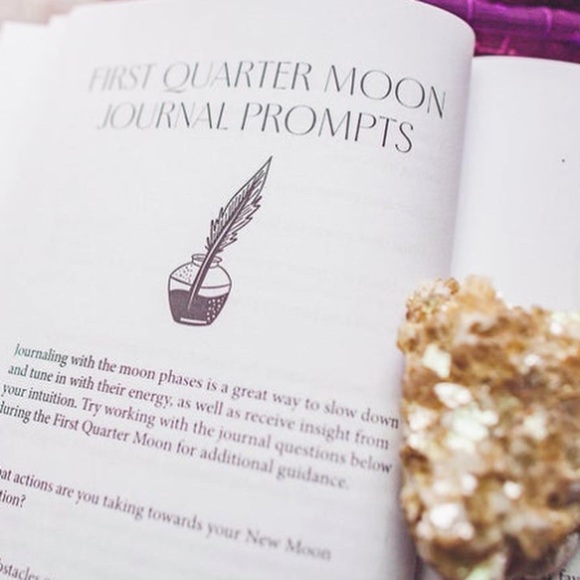 FIRST QUARTER MOON
JOURNAL PROMPTS
Journaling with the moon phases is a great way to slow down
and tune in with their energy, as well as receive insight from
your intuition. Try working with the journal questions below
during the First Quarter Moon for additional guidance.
actions are you taking towards your New Moon